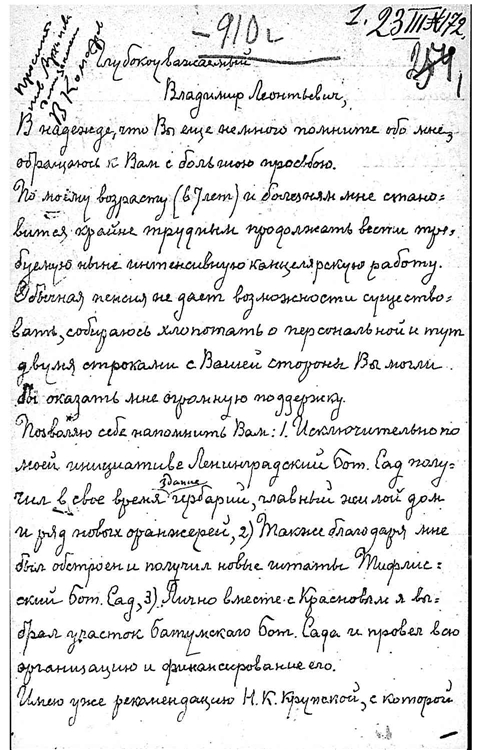 – 910 г
1. 23 III № 172.
Глубокоуважаемый
Владимир Леонтьевич,
В надежде, что Вы еще немного помните обо мне,
обращаюсь к Вам с большою просьбою.
По моему возрасту (67 лет) и болезням мне стано=
вится крайне трудным продолжать вести тре=
буемую ныне интенсивную канцелярскую работу.
Обычная пенсия не дает возможности существо=
вать, собираюсь хлопотать о персональной и тут
двумя строками с Вашей стороны Вы могли
бы оказать мне огромную поддержку.
Позволяю себе напомнить Вам: 1. Исключительно по
моей инициативе Ленинградский Бот. Сад полу=
здание
чил в свое время гербарий, главный жилой дом
и ряд новых оранжерей, 2) Также благодаря мне
был обстроен и получил новые штаты Тифлис=
ский Бот. Сад, 3). Лично вместе с Красновым я вы=
брал участок Батумского Бот. Сада и провел всю
организацию и финансирование его.
Имею уже рекомендацию Н. К. Крупской, с которой